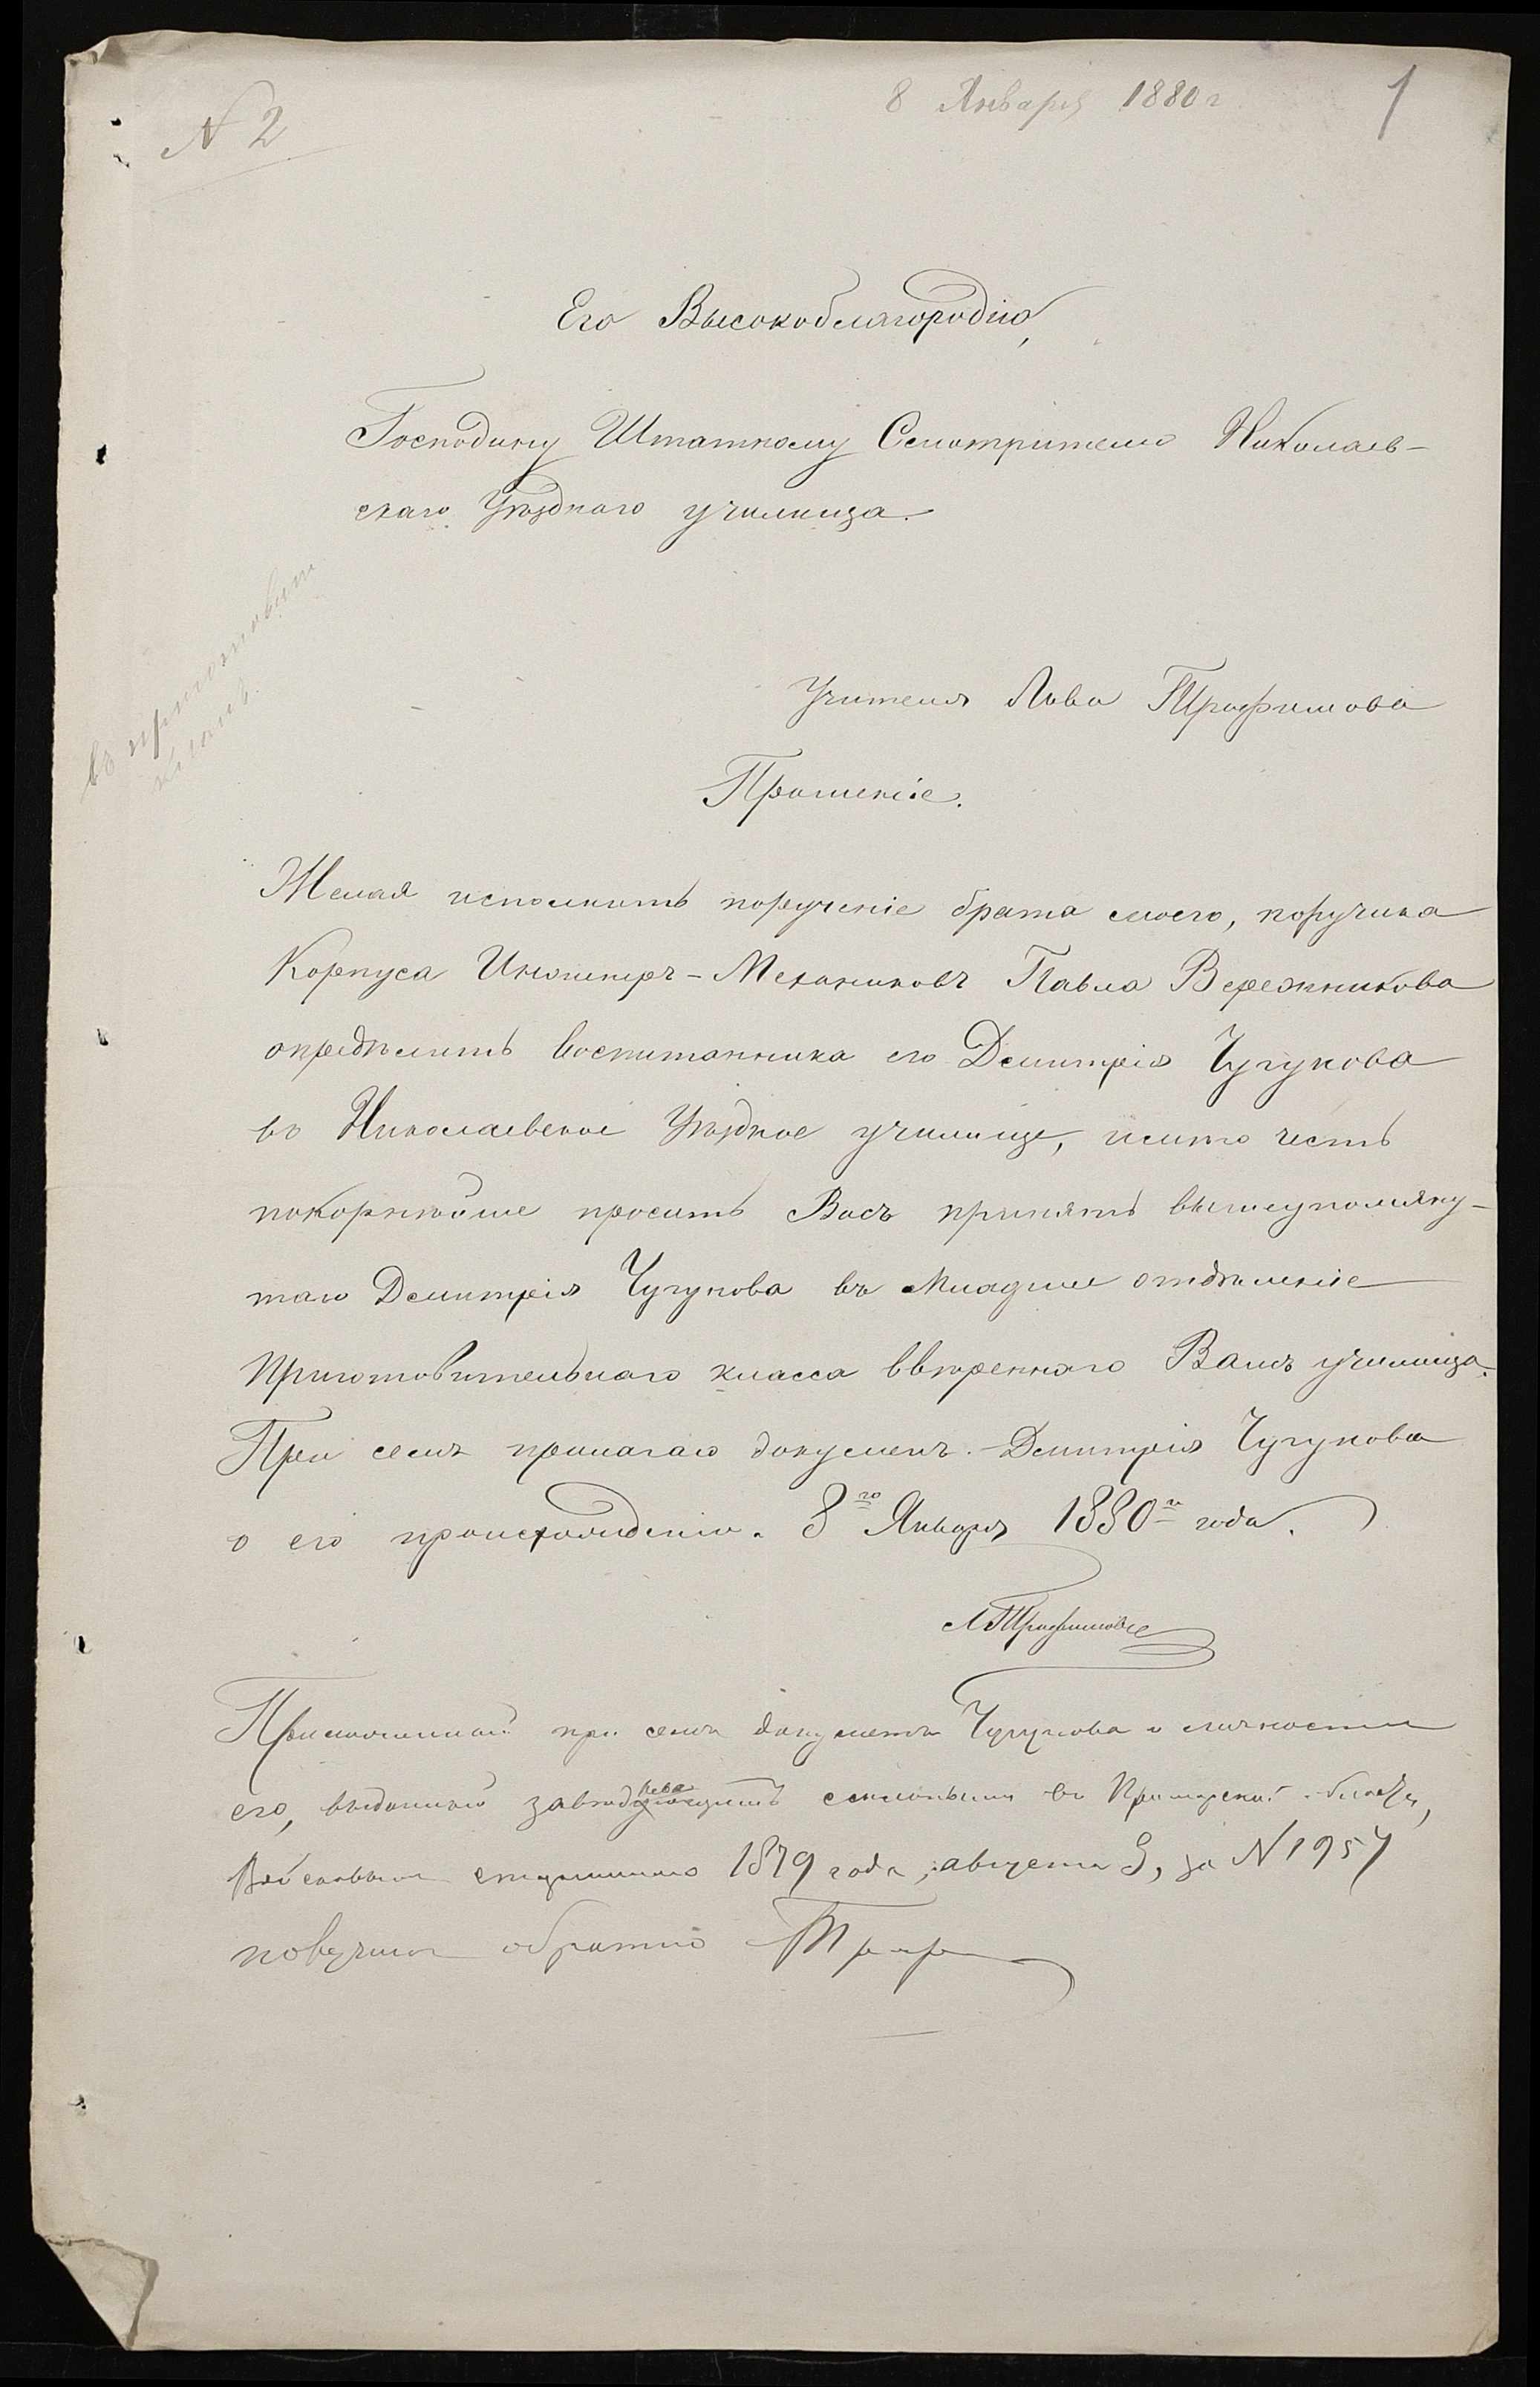 8 Января 1880 г
1
N 2
Его Высокоблагородію,
Господину Штатному Смотрителю Николаев-
скаго Уѣзднаго училища.
въ приготовит
классъ.
Учителя Льва Трофимова
Прошеніе.
Желая исполнить порученіе брата моего, поручика
Корпуса Инженеръ-Механиковъ Павла Вережникова
опредѣлить воспитанника его Демитрія Чугунова
въ Николаевское Уѣздное училище, имѣю честь
покорнѣйше просить Васъ принять вышеупомяну-
таго Демитрія Чугунова въ младшее отдѣленіе
Приготовительнаго класса ввѣреннаго Вамъ училища.
При семъ прилагаю докуменъ Демитрія Чугунова
о его происхожденіи. 8го Января 1880го года.
Л Трофимовъ
Приложенный при семъ документъ Чугунова о личности
его, выданный завѣд селеніями въ Приморской области,
1879 года, августа 9, за N 1957
получилъ обратно